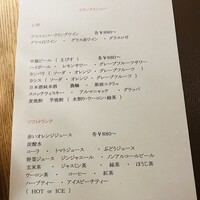 ドリンクメニュー
お酒
グラススパークリングワイン 各￥880～
グラス白ワイン ・ グラス赤ワイン ・ グラスロゼ
中瓶ビール （ えびす ） 各￥880～
ハイボール ・ レモンサワー ・ グレープフルーツサワー
カンパリ （ ソーダ ・ オレンジ ・ グレープフルーツ ）
カシス （ ソーダ ・ オレンジ ・ グレープフルーツ ）
日本酒純米酒
スコッチウィスキー ・ アルマニャック ・ グラッパ
麦焼酎 芋焼酎 （ 水割り・ウーロン・緑茶 ）
ソフトドリンク
赤いオレンジジュース 各￥880～
炭酸水
コーラ ・ トマトジュース ・ ぶどうジュース
野菜ジュース ジンジャエール ・ ノンアルコールビール
玄米茶 ・ ジャスミン茶 ・ 緑茶 ・ ほうじ茶
ウーロン茶 ・ コーヒー ・ 紅茶
ハーブティー ・ アイスピーチティー
（ HOT or ICE ）